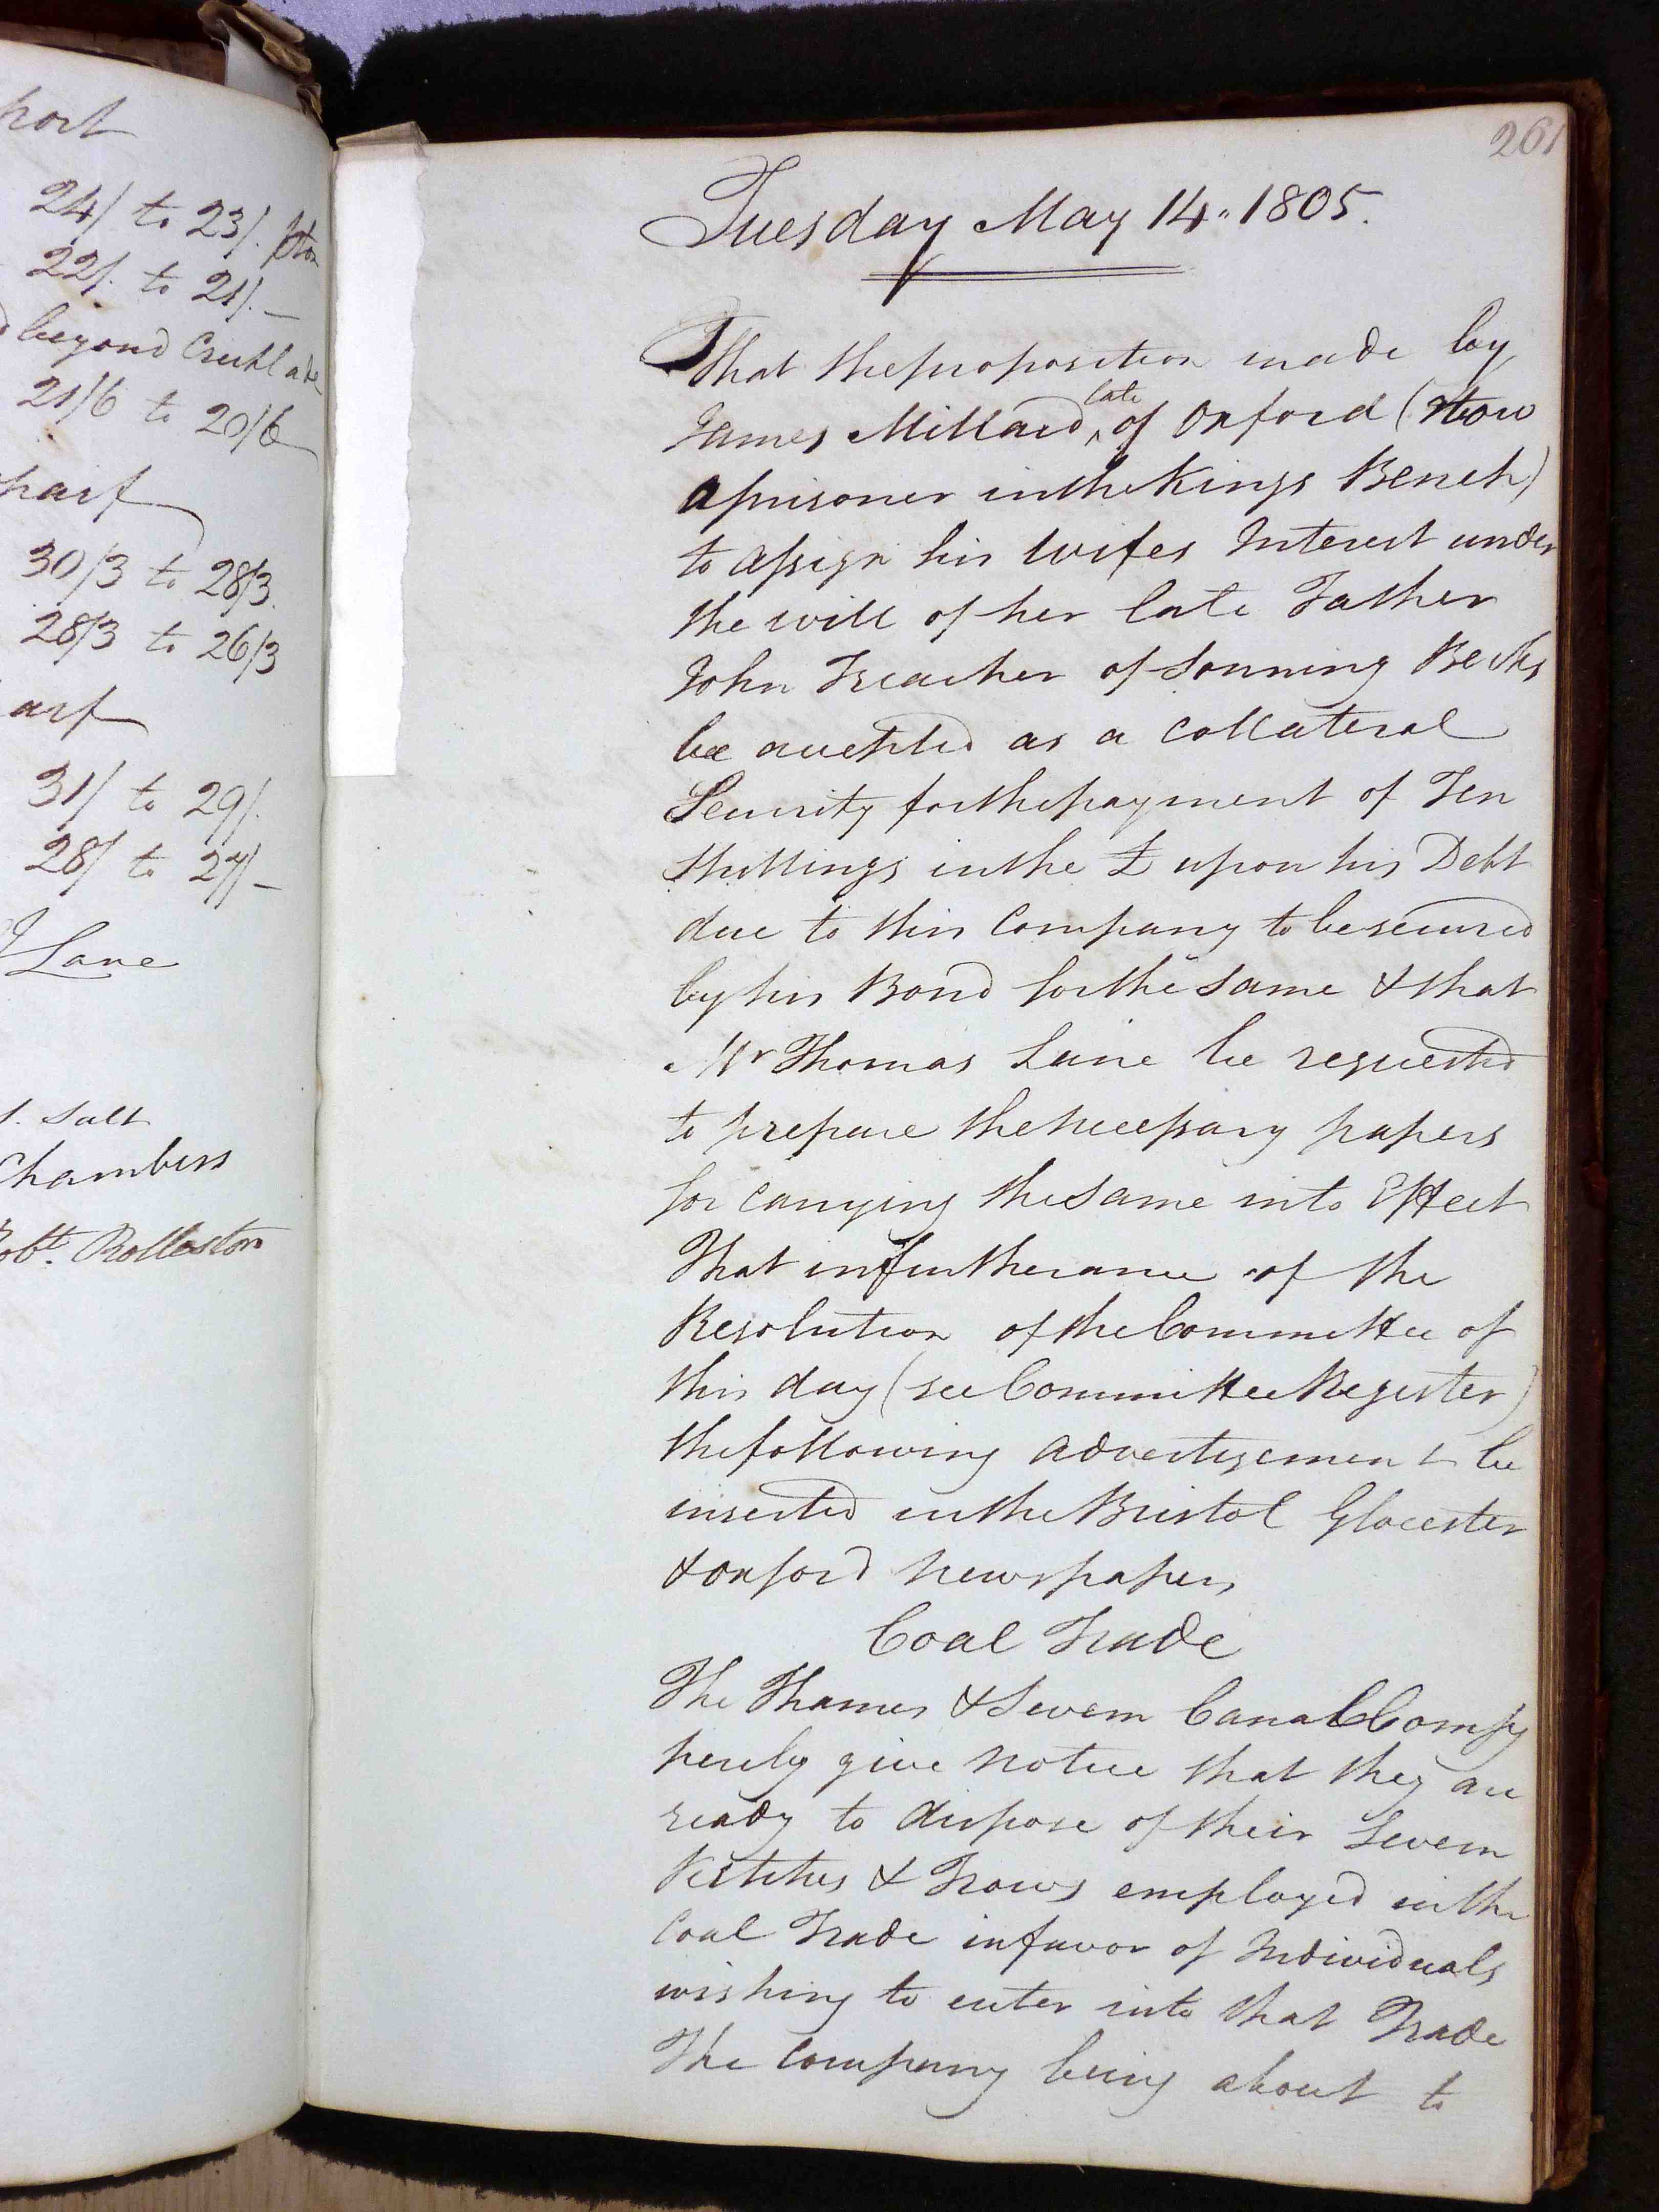 24/ to 23/. pton
22/. to 21/. —
beyond Cricklade
21/6 to 20/6
30/3 to 28/3.
28/3 to 26/3
31/ to 29/.
28/ to 27/ —
Lane
Salt
Chambers
Robt. Rolleston
261
Tuesday May 14.. 1805.
That the proposition made by
James Millard late of Oxford (Now
a prisoner in the Kings Bench)
to assign his Wifes Interest under
the will of her late Father
John Treacher of Sonning Berks
be accepted as a Collateral
Security for the payment of Ten
Shillings in the £ upon his Debt
due to this Company to be secured
by his Bond for the same & that
Mr Thomas Lane be requested
to prepare the necessary papers
for carrying the same into Effect
That in furtherance of the
Resolution of the Committee of
this day (see Committee Register)
the following advertizement be
inserted in the Bristol Glocester
& Oxford Newspapers
Coal Trade
The Thames & Severn Canal Compy
hereby give notice that they are
ready to dispose of their Severn
Ketches & Trows employed in the
Coal Trade in favor of Individuals
wishing to enter into that Trade
The Company being about to